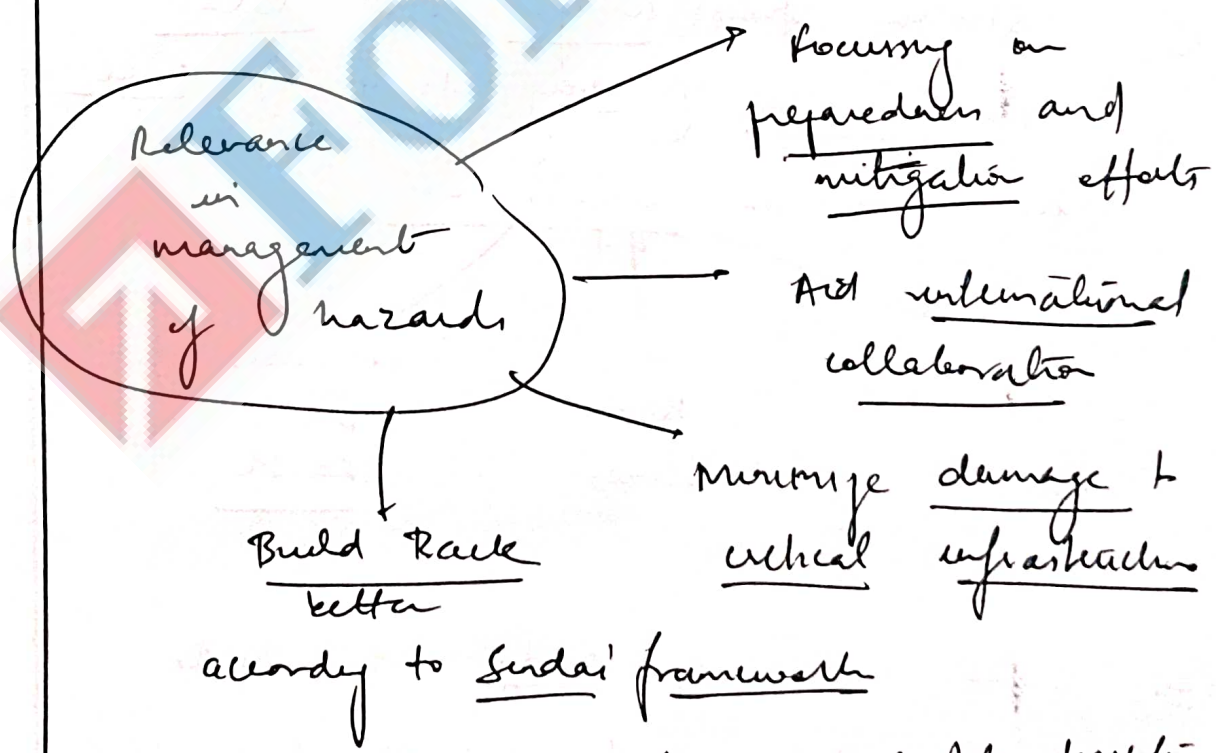 Relevance
in
management
of hazards
Focussing on
preparedness and
mitigation efforts
Aid international
collaboration
Minimize damage to
critical infrastructure
Build Back
better
according to Sendai framework
For